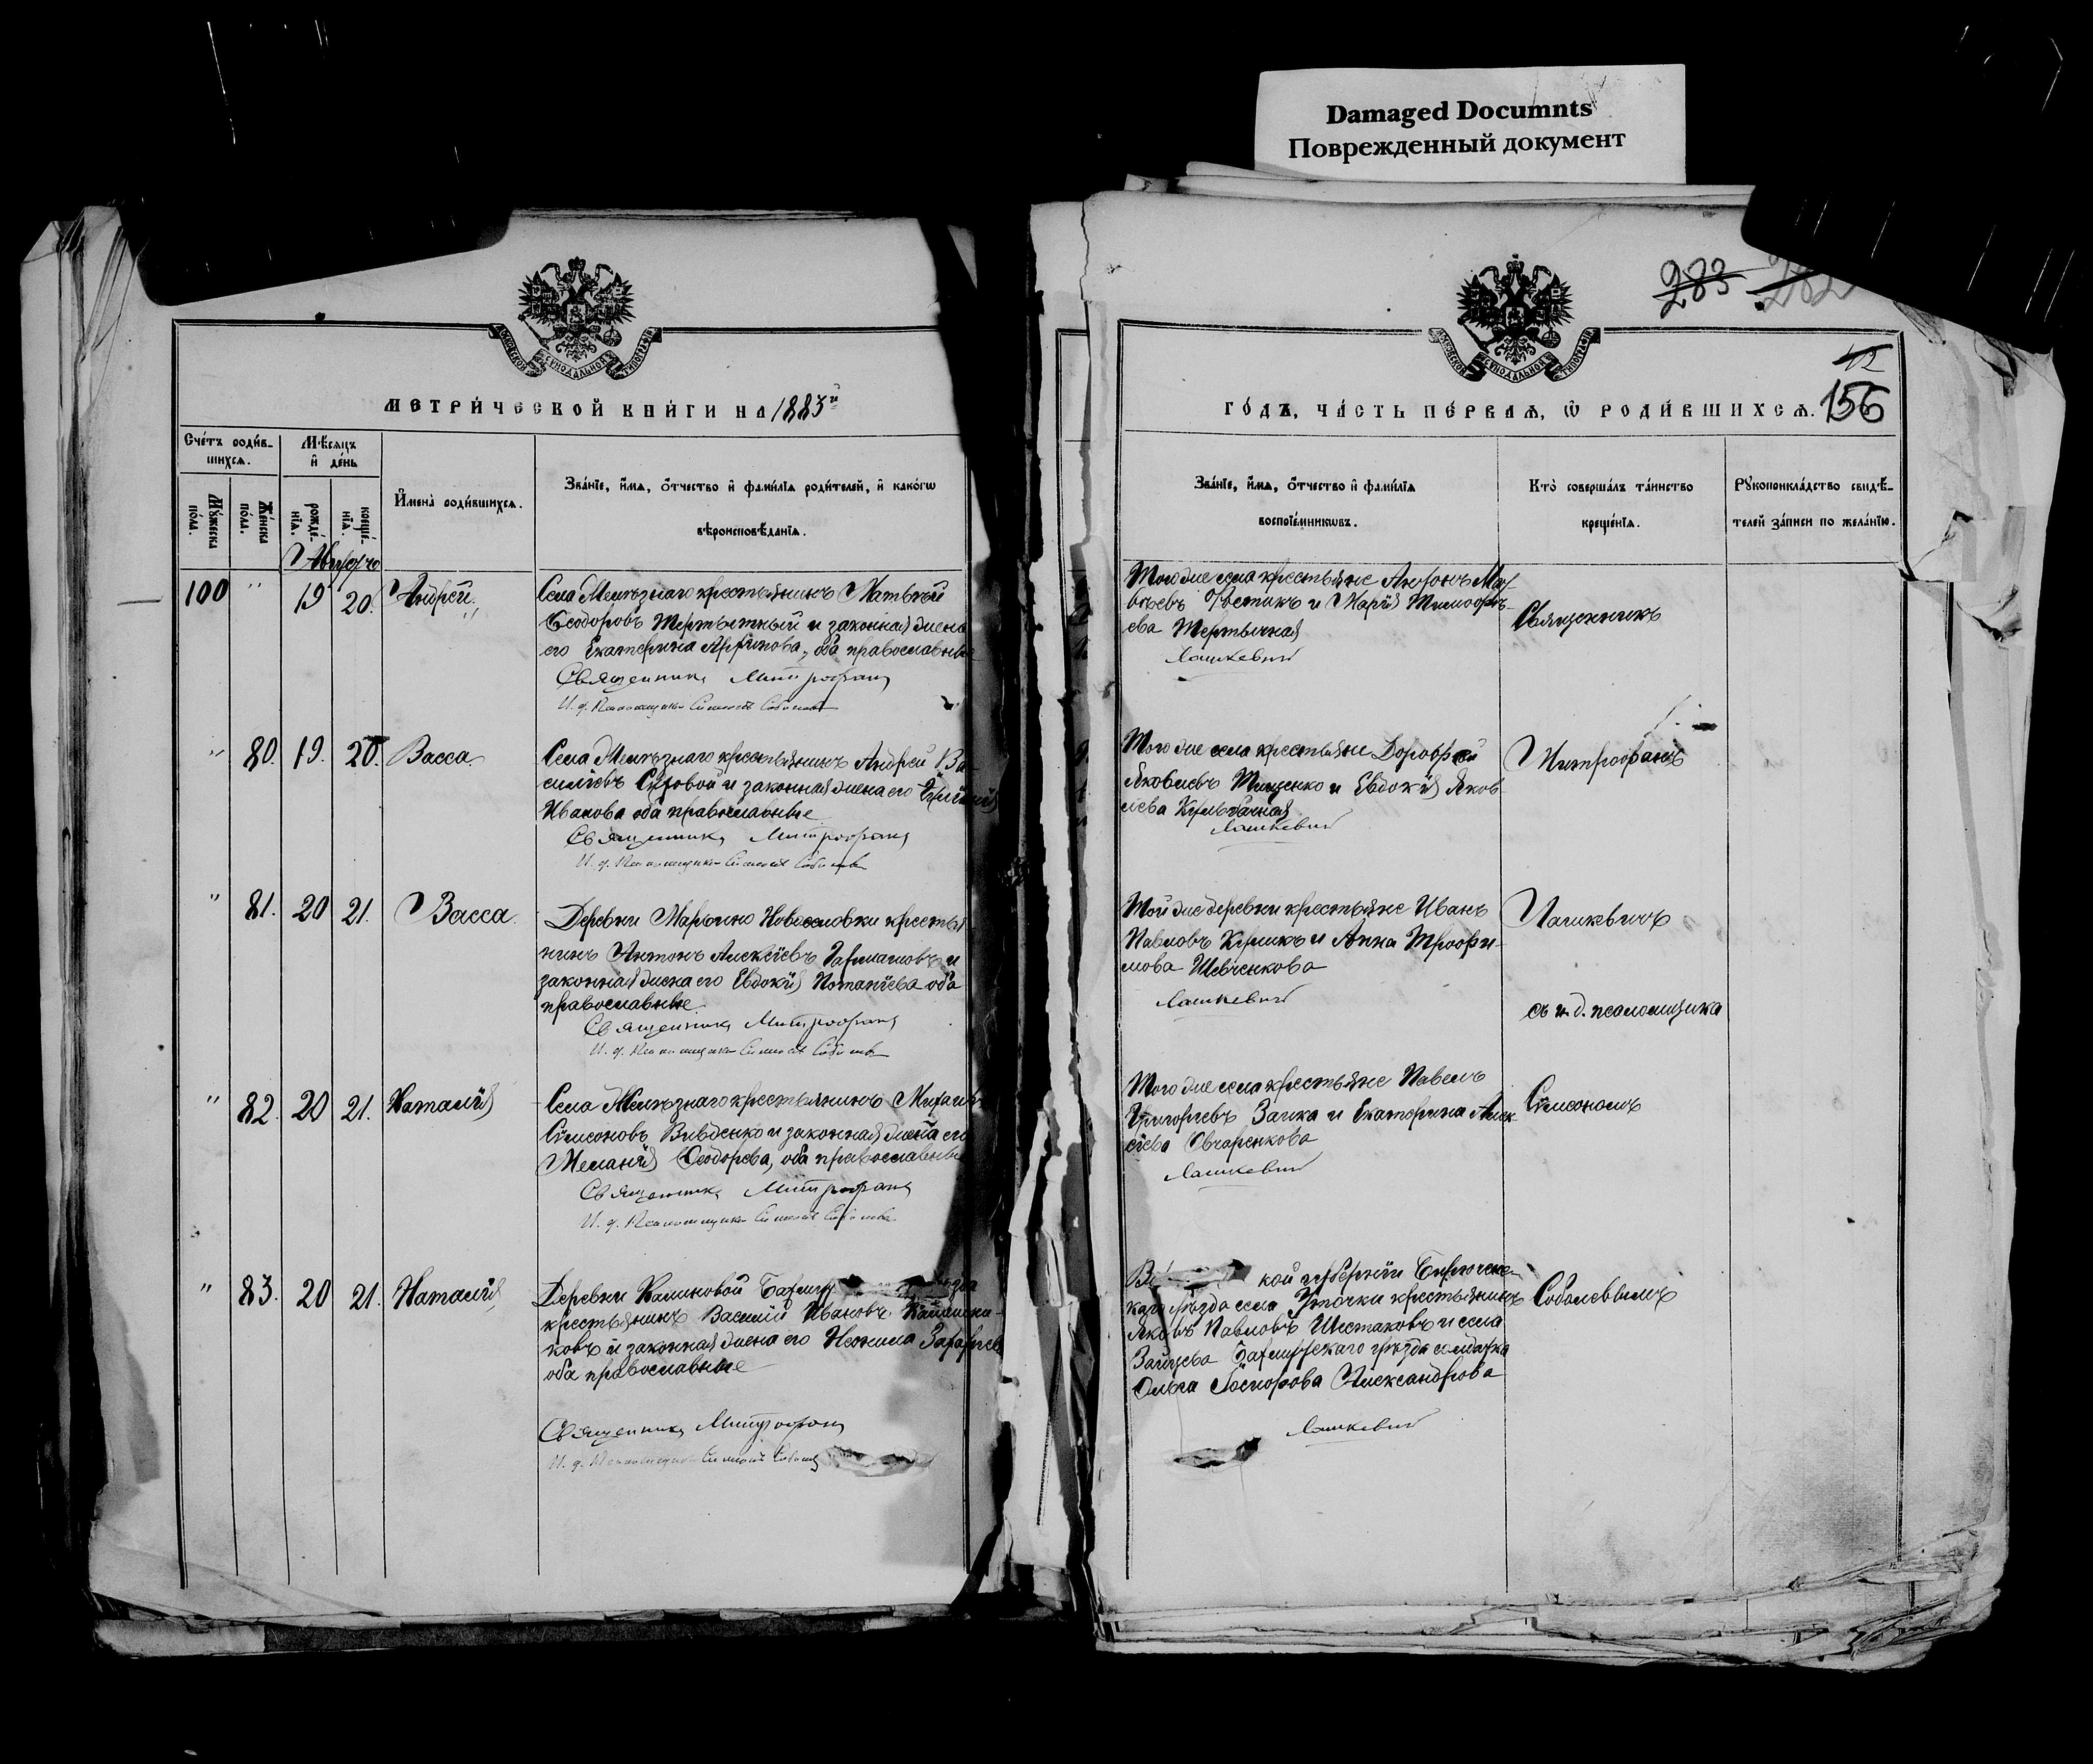 Damaged Documnts
Поврежденный документ
283 282
МОСКОВСКОЙ СѴНОДАЛЬНОЙ ТИПОГРАФІИ
МОСКОВСКОЙ СѴНОДАЛЬНОЙ ТИПОГРАФІИ
42
МЕТРИ́ЧЕСКОЙ КНИ́ГИ НА 1883й
ГО́ДЪ, ЧА́СТЬ ПЕ́РВАѦ, Ѿ РОДИ́ВШИХСѦ. 156
Сче́тъ роди́в-
шихсѧ.
Мѣ́сяцъ
и҆ де́нь
Мꙋ́жеска
по́ла.
Же́нска
по́ла.
рожде́-
нїѧ.
креще́-
нїѧ.
И҆мена̀ роди́вшихсѧ.
Зва́нїе, и҆́мѧ, ѻ҆́тчество и҆ фами́лїѧ роди́телей, и҆ како́гѡ
вѣроисповѣ́данїѧ.
Зва́нїе, и҆́мѧ, ѻ҆́тчество и҆ фами́лїѧ
воспрїе́мниковъ.
Кто̀ соверша́лъ та́инство
креще́нїѧ.
Рꙋкоприкла́дство свидѣ́-
телей за́писи по жела́нїю.
Августъ
100 " 19 20. Андрей
Села Желѣзнаго крестьянинъ Матвѣй
Ѳеодоровъ Тертычный и законная жена
его Екатерина , оба православные
Священникъ Митрофанъ
И. д. Псаломщика Симеонъ Соболевъ
Того же села крестьяне Антонъ Мат
вѣевъ Костикъ и Марія Тимоѳѣ-
ева Тертычная
Лашкевичъ
Священникъ
" 80. 19. 20. Васса.
Села Желѣзнаго крестьянинъ Андрей Ва-
силіевъ Суровой и законная жена его
Иванова оба православные
Священникъ Митрофанъ
И. д. Псаломщика Симеонъ Соболевъ
Того же села крестьяне Дороѳей
Яковлевъ Тищенко и Евдокія Яков
лева
Лашкевичъ
Митрофанъ
" 81. 20 21. Васса.
Деревни Марьино Новоселовки крестья
нинъ Антонъ Алексіевъ и
законная жена его Евдокія Потапіева оба
православные
Священникъ Митрофанъ
И. д. Псаломщика Симеонъ Соболевъ
Той же деревни крестьяне Иванъ
Павловъ и Анна Трофи-
мова Шевченкова
Лашкевичъ
Лашкевичъ
съ и. д. псаломщика
" 82. 20 21. Наталія
Села Желѣзнаго крестьянинъ Михаилъ
Симеоновъ Вивденко и законная жена его
Меланія Ѳеодорова, оба православные
Священникъ Митрофанъ
И. д. Псаломщика Симеонъ Соболевъ
Того же села крестьяне Павелъ
Григоріевъ Заика и Екатерина Алек
сіева Овчаренкова
Лашкевичъ
Симеономъ
" 83. 20 21. Наталія
Деревни Калиновой Бахмут
крестьянинъ Василій Ивановъ
ковъ и законная жена его Неонила Захаріева
оба православные
Священникъ Митрофанъ
И. д. Псаломщика Симеонъ Соболевъ
кой губерніи Бирюченс-
каго уѣзда села Уточки крестьянинъ
Яковъ Павловъ Шестаковъ и села
Зайцева Бахмутскаго уѣзда солдатка
Ольга Александрова
Лашкевичъ
Соболевымъ